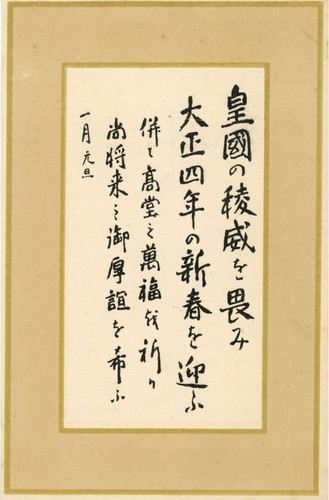 皇國の稜威を畏み
大正四年の新春を迎ふ
併て高堂之萬福を祈り
尚将来之御厚誼を希ふ
一月元旦